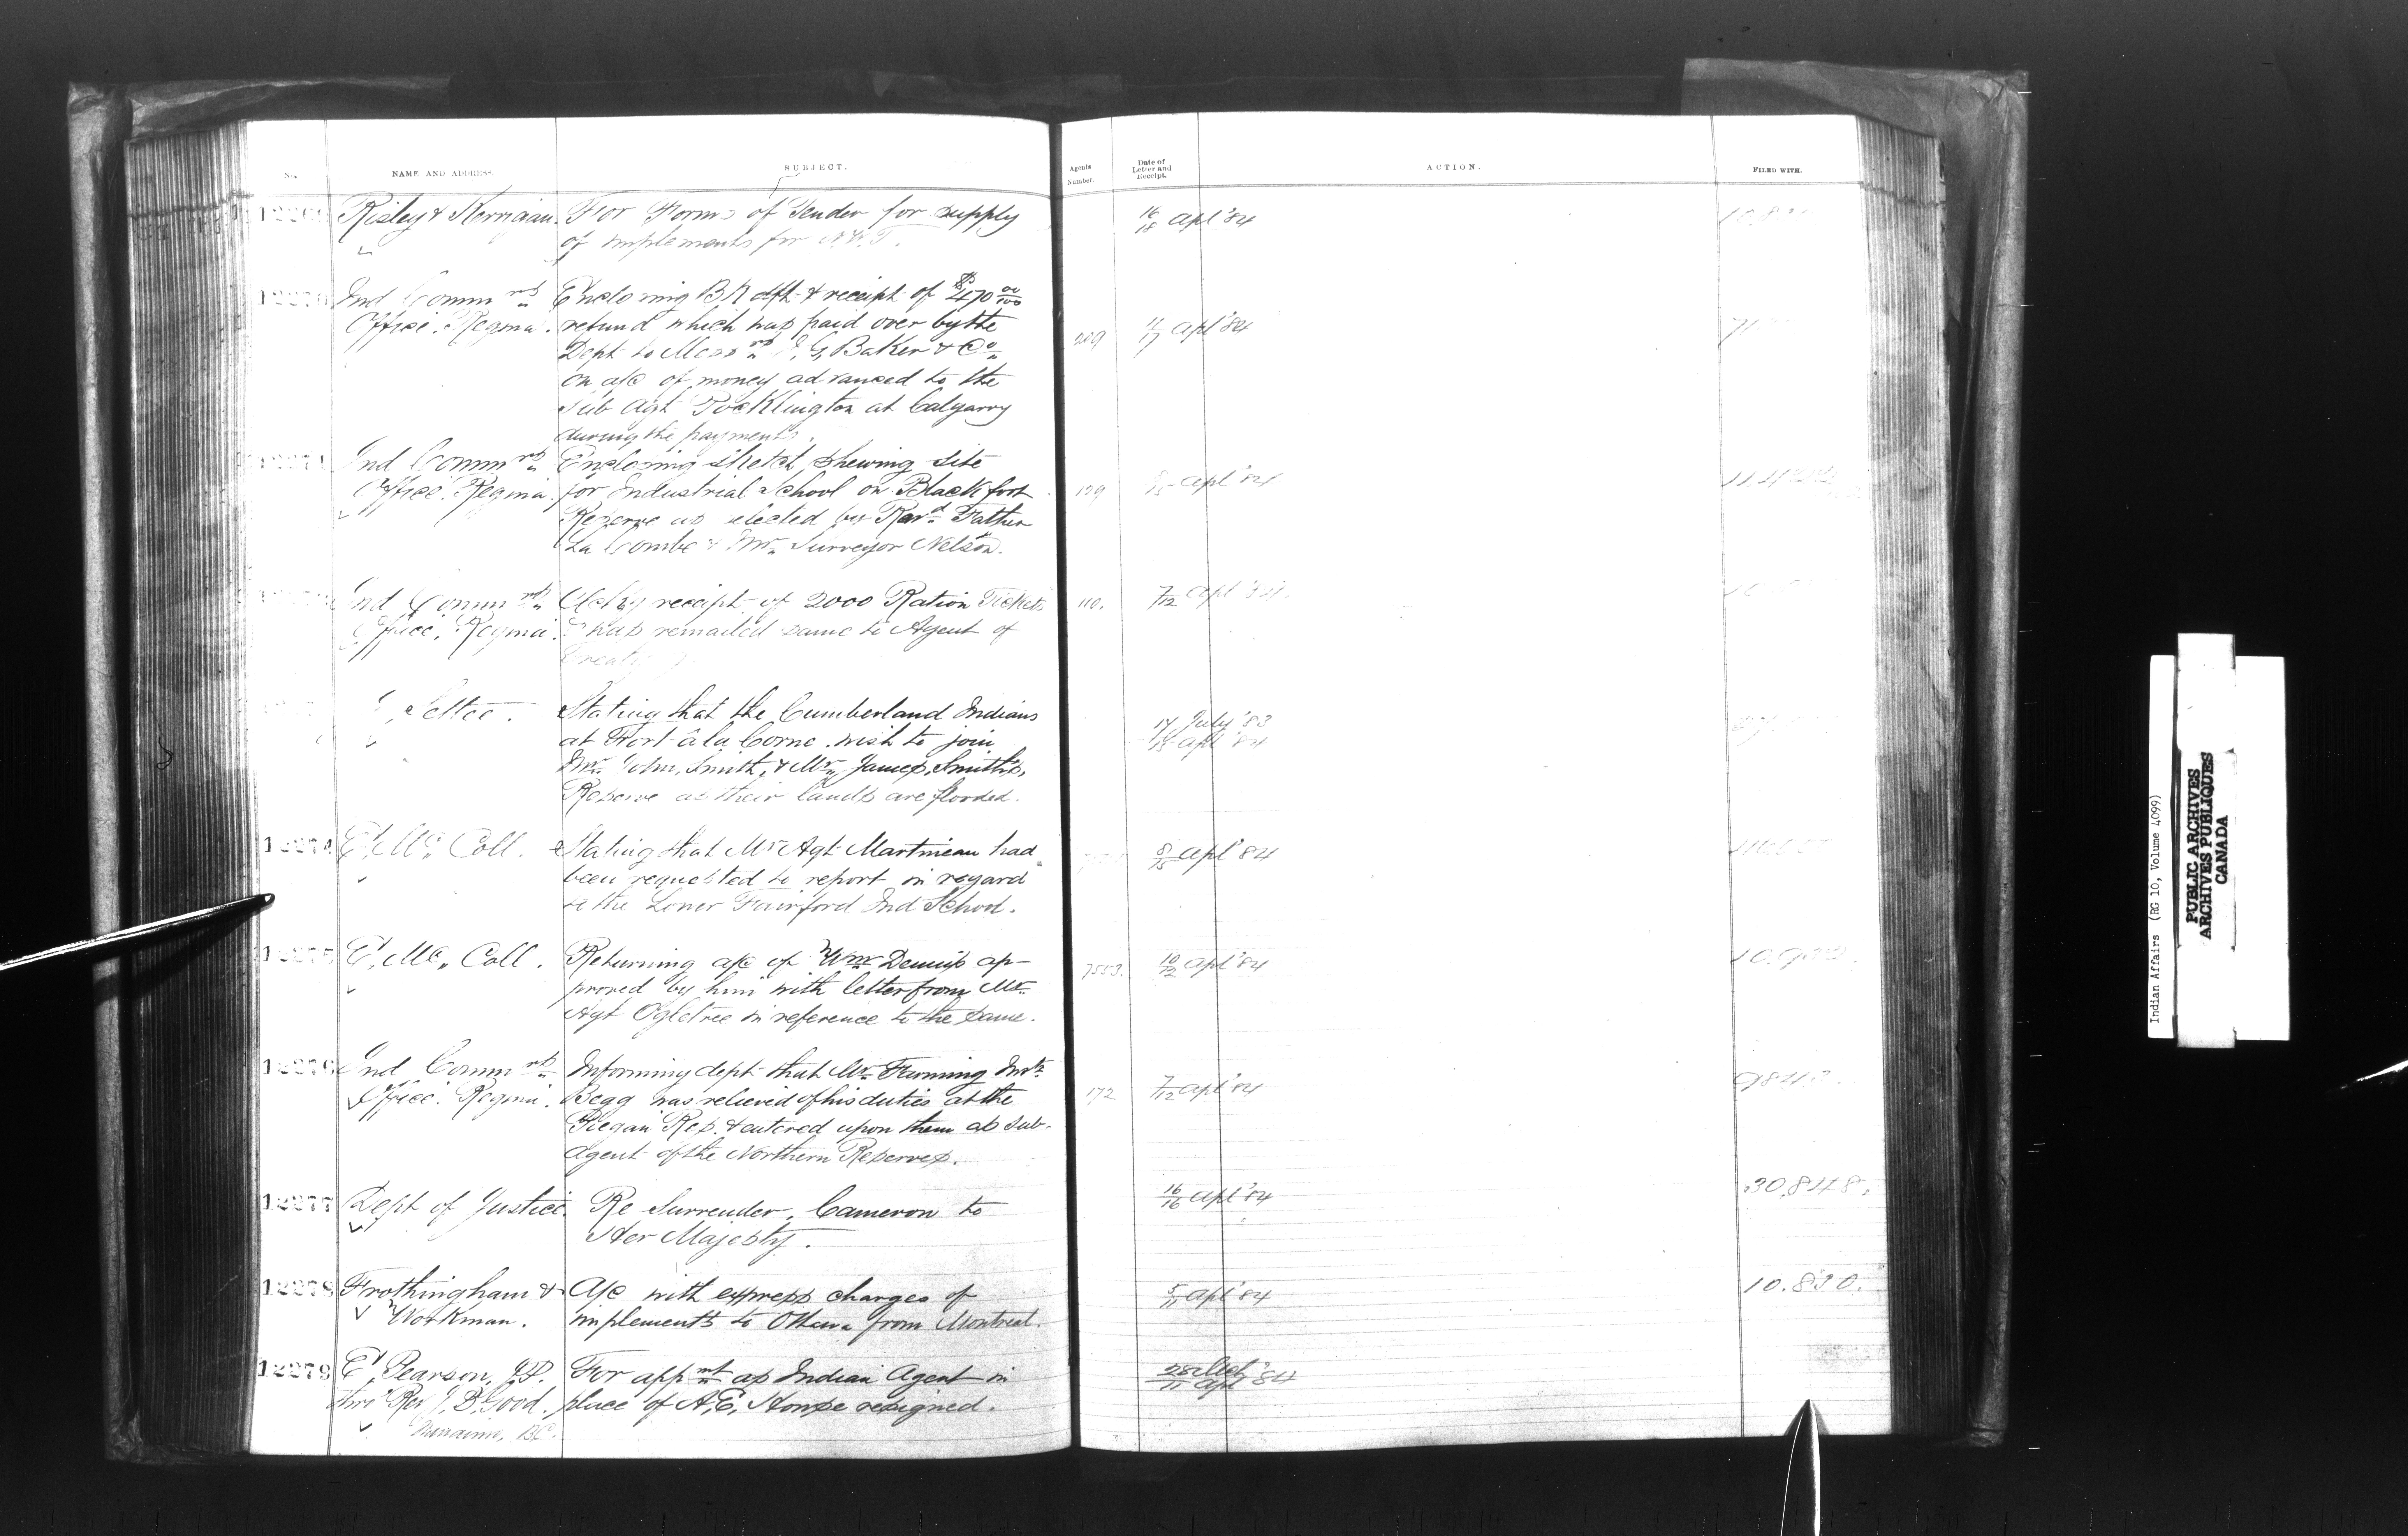 No.
NAME AND ADDRESS.
SUBJECT.
Agents Number.
Date of Letter and Receipt.
ACTION.
FILED WITH.
Risley & Kerrigan. For Forms of Tender for supply
of implements for N.W.T.
16/18 Apl '84
Ind Commrs Enclosing Bk dft & receipt of $470 00/100
Office. Regina. refund which was paid over by the
Dept to Messrs I. G. Baker & Co
on a/c of money advanced to the
Sub Agt Pocklington at Calgarry
during the payments.
209
Apl '84
Ind Commrs Enclosing sketch shewing site
Office. Regina. for Industrial School on Blackfoot
Reserve as elected by Revd Father
La Combe & Mr. Surveyor Nelson.
129
Apl '84
Ind Commrs Ackg receipt of 2000 Ration Tickets
Office. Regina. & has remailed same to Agent of
110.
7/12 Apl '84.
Settee. Stating that the Cumberland Indians
at Fort à la Corne wish to join
Mr. John Smith, & Mr. James Smith's,
Reserve as their lands are flooded.
17 July '83
15 Apl '84
12274
E. Mc. Coll. Stating that Mr Agt Martineau had
been requested to report in regard
to the Loner Fairford Ind School.
8/15 Apl '84
12275
E. Mc. Coll. Returning a/c of Wm Dennis ap-
proved by him with letter from Mr.
Agt Ogletree in reference to the same.
7553.
10/12 Apl '84
12276
Ind Commrs Informing dept that Mr. Farming Instr
Office. Regina. Begg was relieved of his duties at the
Piegan Res. & entered upon them as Sub-
Agent of the Northern Reserves.
172
7/12 Apl '84
12277
Dept of Justice. Re Surrender, Cameron to
Her Majesty.
16/16 Apl '84
30,848.
12278
Frothingham & A/c with express charges of
Workman. implements to Ottawa from Montreal.
5/11 Apl '84
10.830.
12279
E. Pearson, J.P. For appmt as Indian Agent in
thro' Rev J. B. Good. place of A. E. Howse resigned.
Nanaimo, BC.
28 Mch/11 Apl '84
Indian Affairs (RG 10, Volume 4099)
PUBLIC ARCHIVES
ARCHIVES PUBLIQUES
CANADA